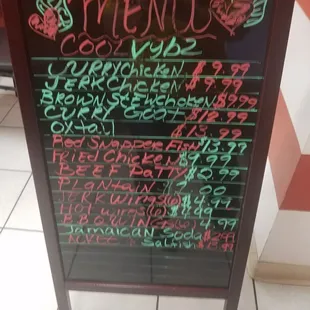 MENU
COOL VYBZ
CURRY Chicken $9.99
JERK Chicken $9.99
BROWN Stew Chicken $9.99
CURRY Goat $12.99
Oxtail $13.99
Red Snapper Fish 13.99
Fried Chicken $9.99
BEEF Patty $
Plantain .00
JERK Wings $4.99
Hot wings $4.99
B B Q Wings $4.99
Jamaican Soda $2.99